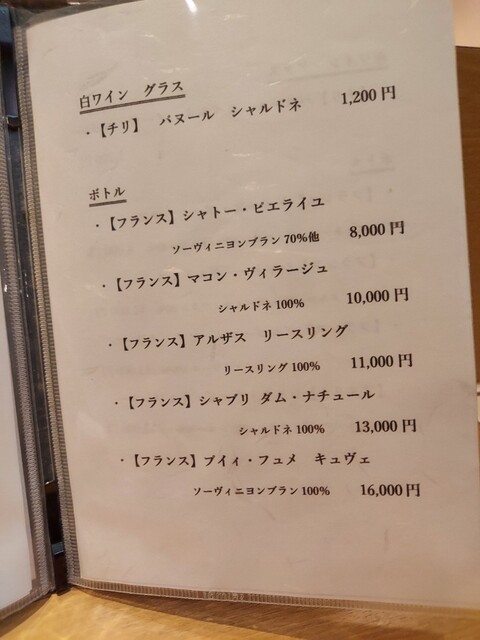 白ワイン グラス
・【チリ】 パヌール シャルドネ 1,200円
ボトル
・【フランス】シャトー・ピエライユ
ソーヴィニヨンブラン 70%他 8,000円
・【フランス】マコン・ヴィラージュ
シャルドネ 100% 10,000円
・【フランス】アルザス リースリング
リースリング 100% 11,000円
・【フランス】シャブリ ダム・ナチュール
シャルドネ 100% 13,000円
・【フランス】プイィ・フュメ キュヴェ
ソーヴィニヨンブラン 100% 16,000円